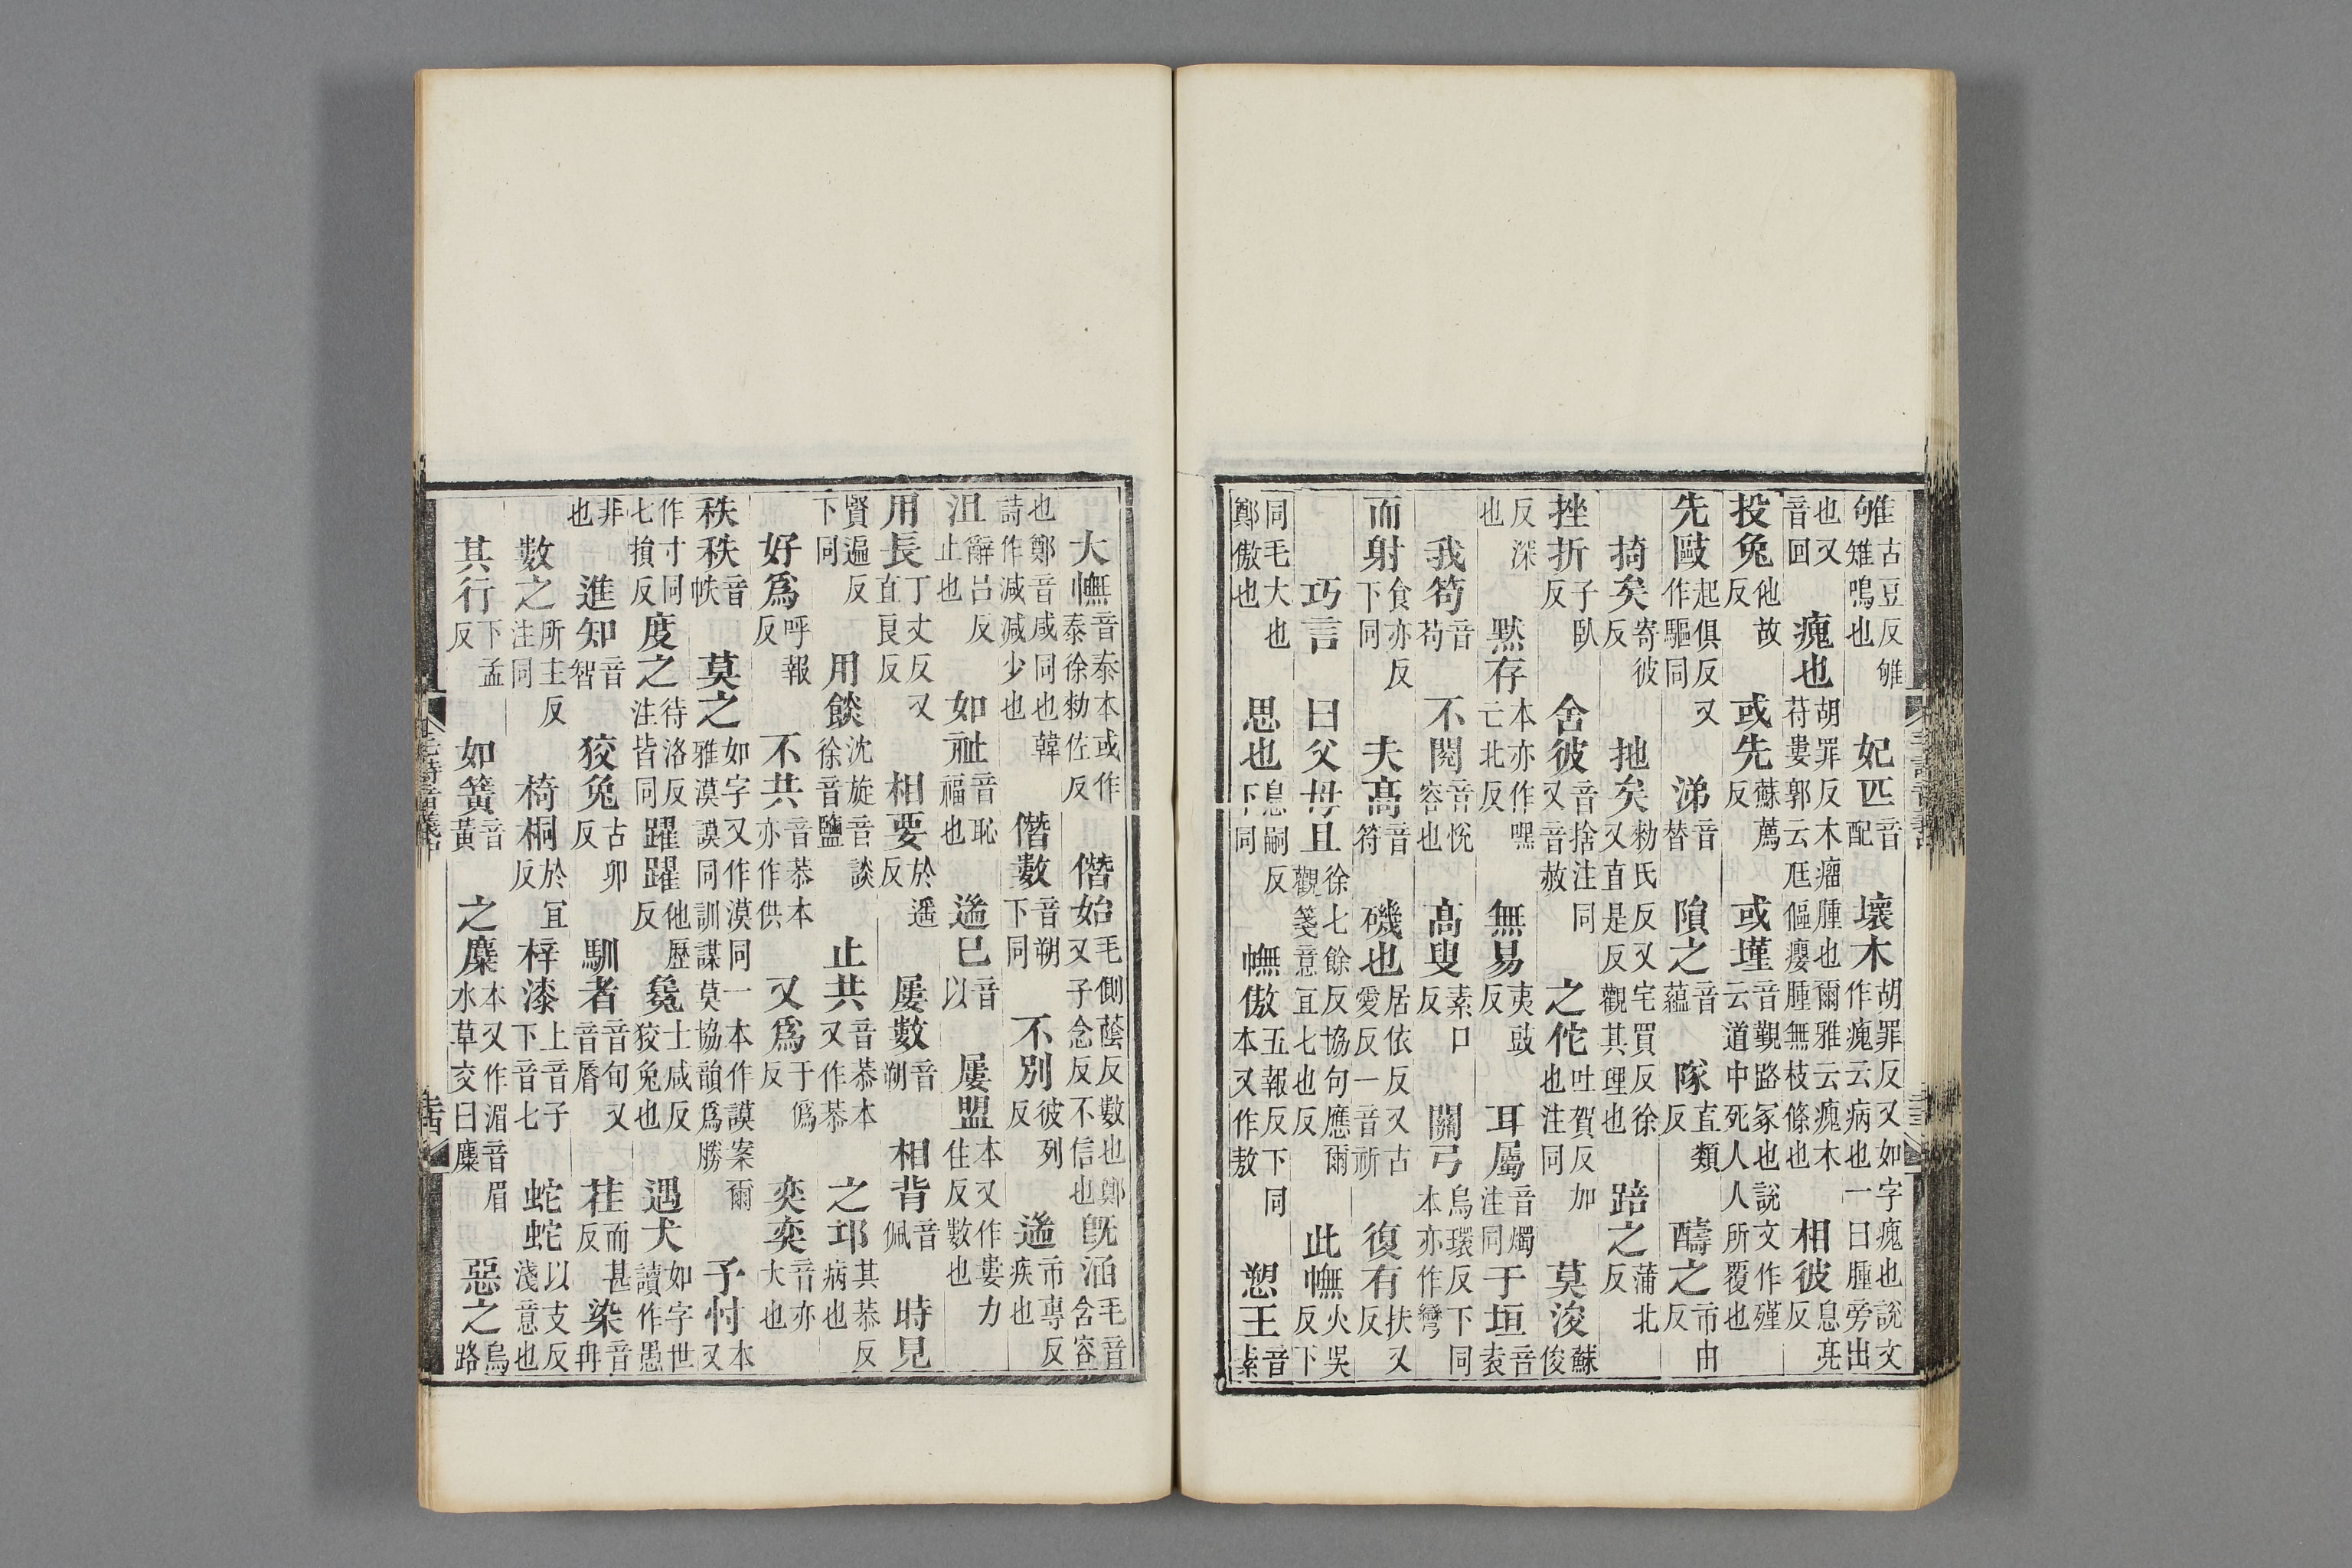 雊古豆反雊雉鳴也 妃匹音配 壞木胡罪反又如字瘣也說文作瘣云病也一曰腫旁出
也又音回 瘣也胡罪反木瘤腫也爾雅云瘣木苻婁郭云尫傴癭腫無枝條也 相彼息亮反
投兔他故反 或先蘇薦反 或墐音覲路冢也說文作殣云道中死人人所覆也
先毆起俱反又作驅同 涕音替 隕之音蘊 隊直類反 醻之市由反
掎矣寄彼反 扡矣勑氏反又宅買反徐又直是反觀其理也 踣之蒲北反
挫折子臥反 舍彼音捨注同又音赦 之佗吐賀反加也注同 莫浚蘇俊
反深也 默存本亦作嘿亡北反 無易夷豉反 耳屬音燭注同 于垣音袁
我笱音苟 不閱音悅容也 高叟素口反 關弓烏環反下同本亦作彎
而射食亦反下同 夫高音符 磯也居依反又古愛反一音祈 復有扶又反
巧言 曰父母且徐七餘反協句應爾觀箋意宜七也反 此憮火吳反下
同毛大也鄭傲也 思也息嗣反下同 憮傲五報反下同本又作敖 愬王音素
大憮音泰本或作泰徐勑佐反 僭始毛側蔭反數也鄭又子念反不信也 旣涵毛音含容
也鄭音咸同也韓詩作減減少也 僭數音朔下同 不別彼列反 遄市專反疾也
沮辭呂反止也 如祉音恥福也 遄已音以 屢盟本又作婁力住反數也
用長丁丈反又直良反 相要於遥反 屢數音朔 相背音佩 時見
賢遍反下同 用餤沈旋音談徐音鹽 止共音恭本又作恭 之邛其恭反病也
好爲呼報反 不共音恭本亦作供 又爲于僞反 奕奕音亦大也
秩秩音帙 莫之如字又作漠同一本作謨案爾雅漠謨同訓謀莫協韻爲勝 予忖本又
作寸同七損反 度之待洛反注皆同 躍躍他歷反 毚士咸反狡兔也 遇犬如字世讀作愚
非也 進知音智 狡兔古卯反 馴者音旬又音脣 荏而甚反 染音冉
數之所主反注同 椅桐於宜反 梓漆上音子下音七 蛇蛇以支反淺意也
其行下孟反 如簧音黃 之麋本又作湄音眉水草交曰麋 惡之烏路